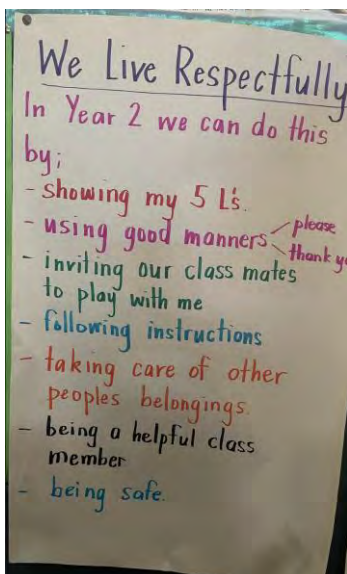 We Live Respectfully
In Year 2 we can do this
by;
- showing my 5 L's.
- using good manners
please
thank yo
- inviting our class mates
to play with me
- following instructions
- taking care of other
peoples belongings.
- being a helpful class
member
- being safe.